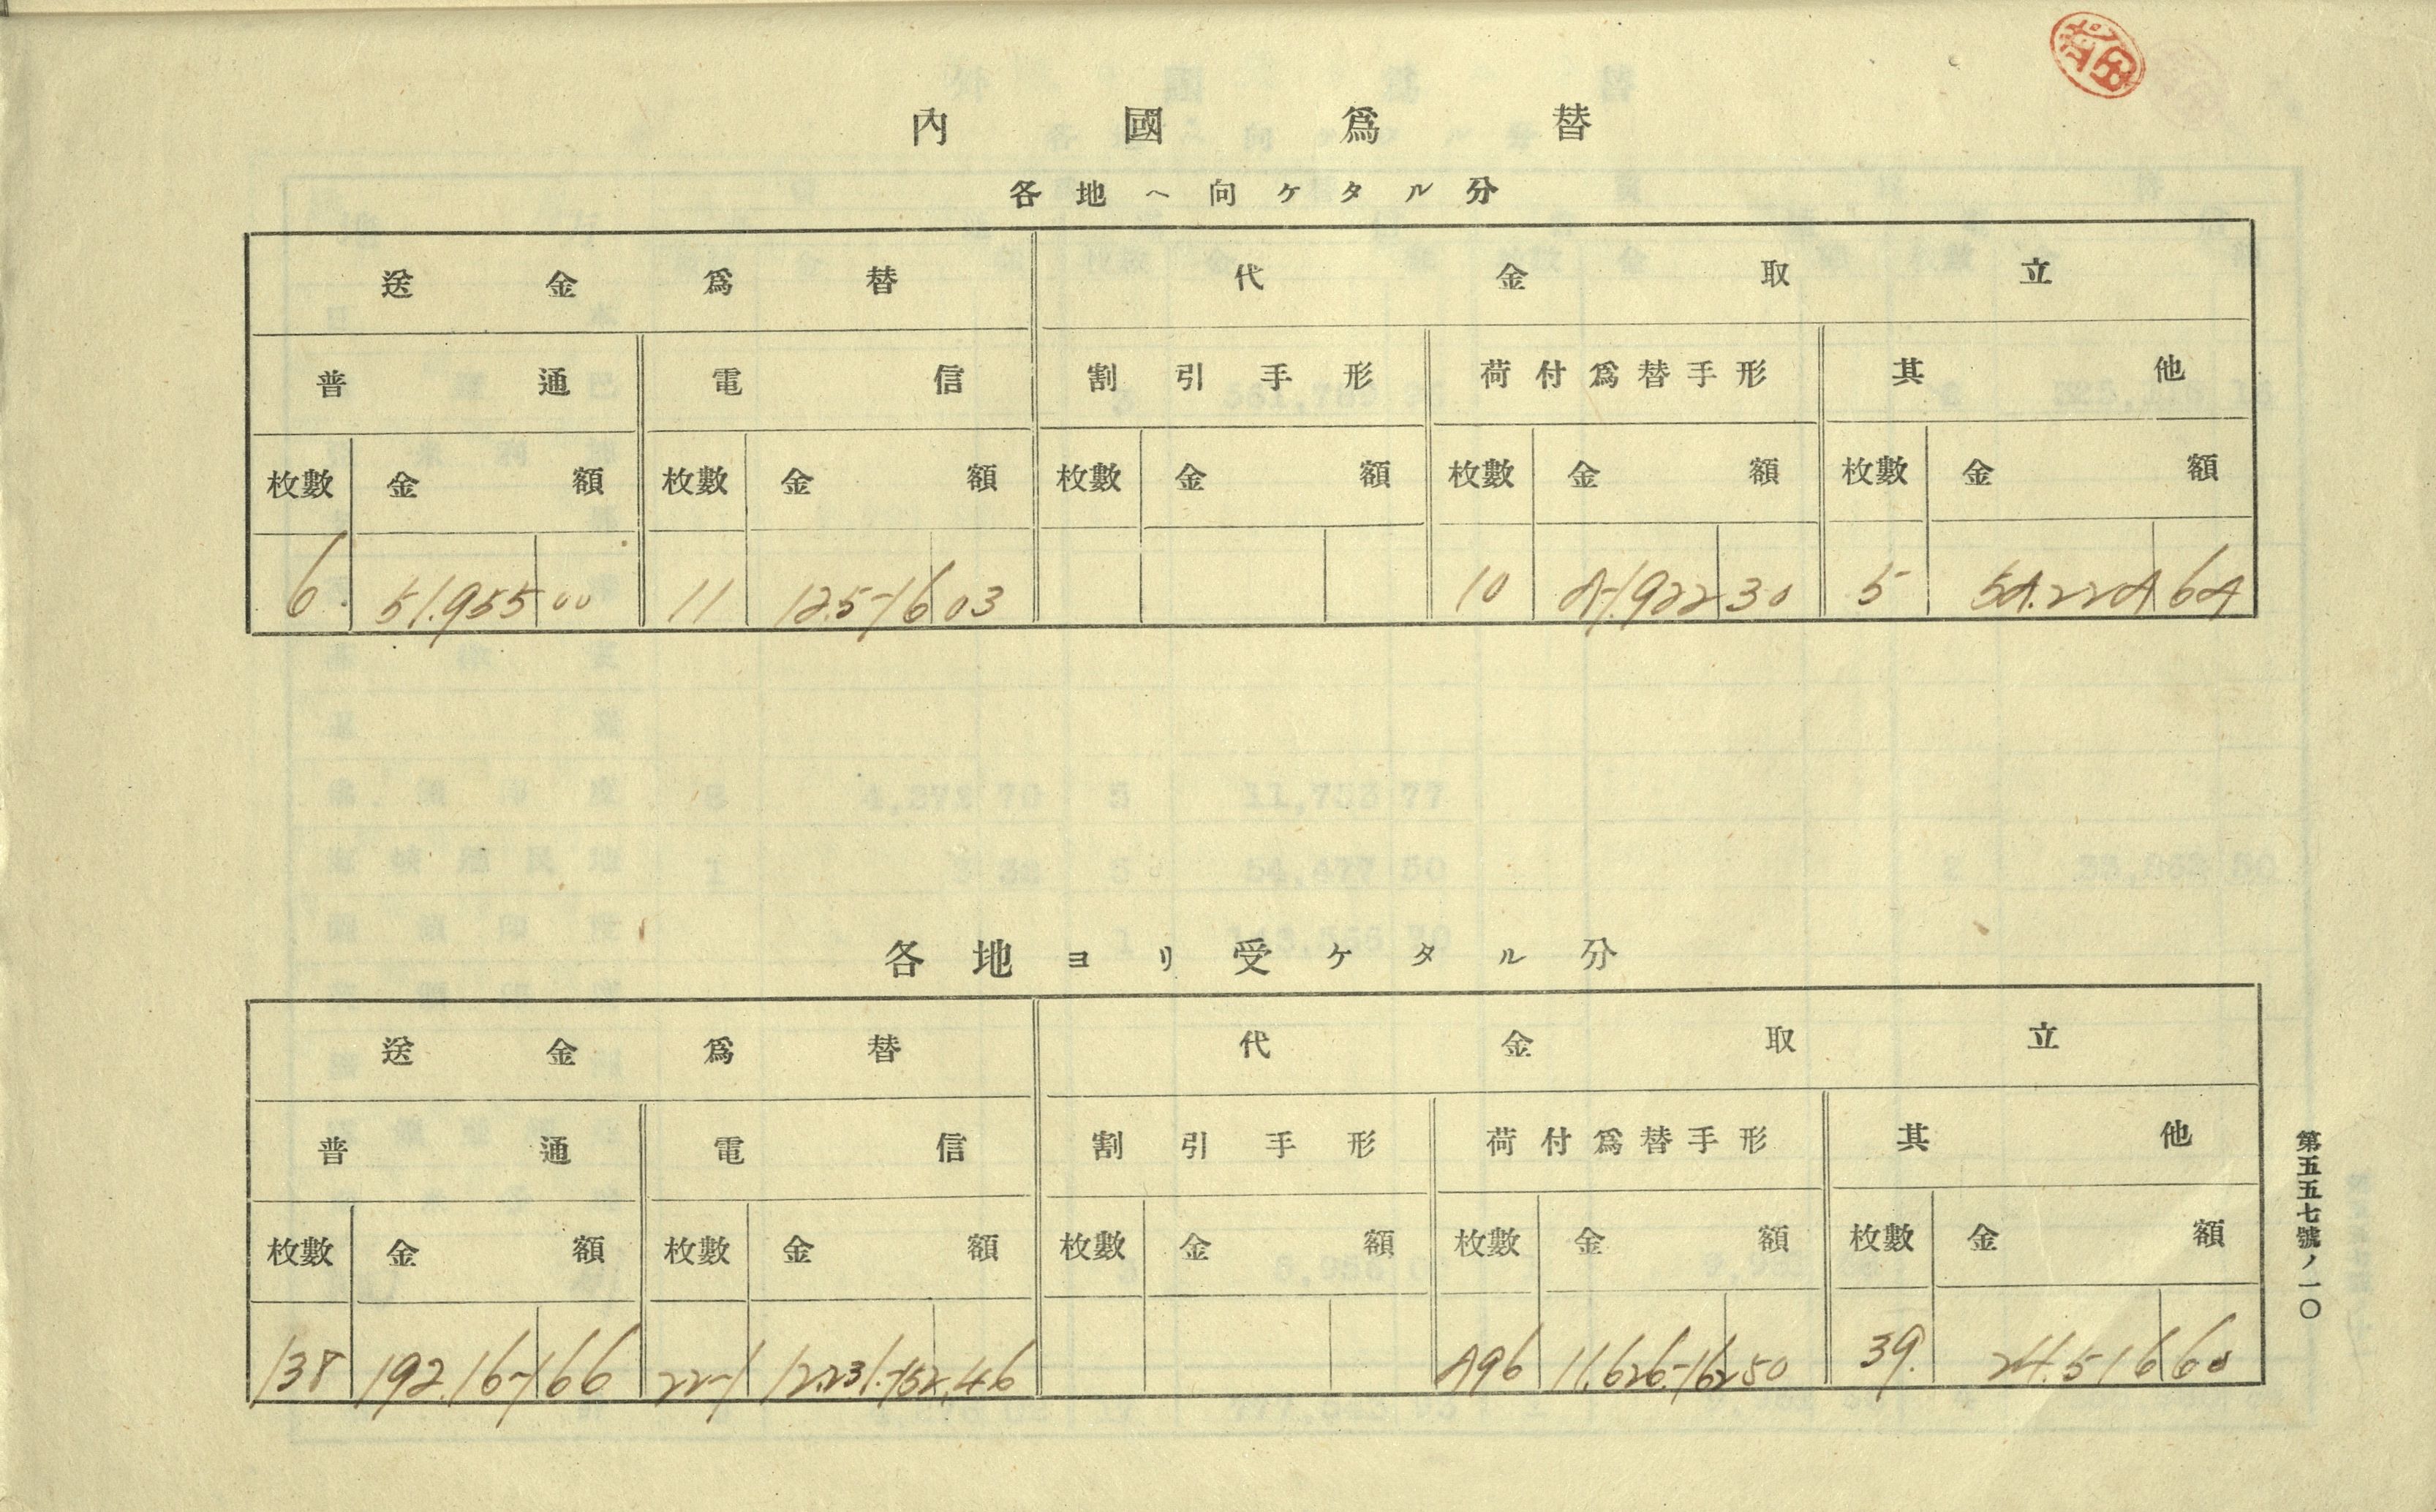 內國爲替
各地ヘ向ケタル分
送金爲替 代金取立
普通 電信 割引手形 荷付爲替手形 其他
枚數 金額 枚數 金額 枚數 金額 枚數 金額 枚數 金額
6 51.955 00 11 12.5716 03 10 47.922 30 5 54.224 64
各地ヨリ受ケタル分
送金爲替 代金取立
普通 電信 割引手形 荷付爲替手形 其他
枚數 金額 枚數 金額 枚數 金額 枚數 金額 枚數 金額
138 192.167 66 39. 24.516 60
第五五七號ノ一〇